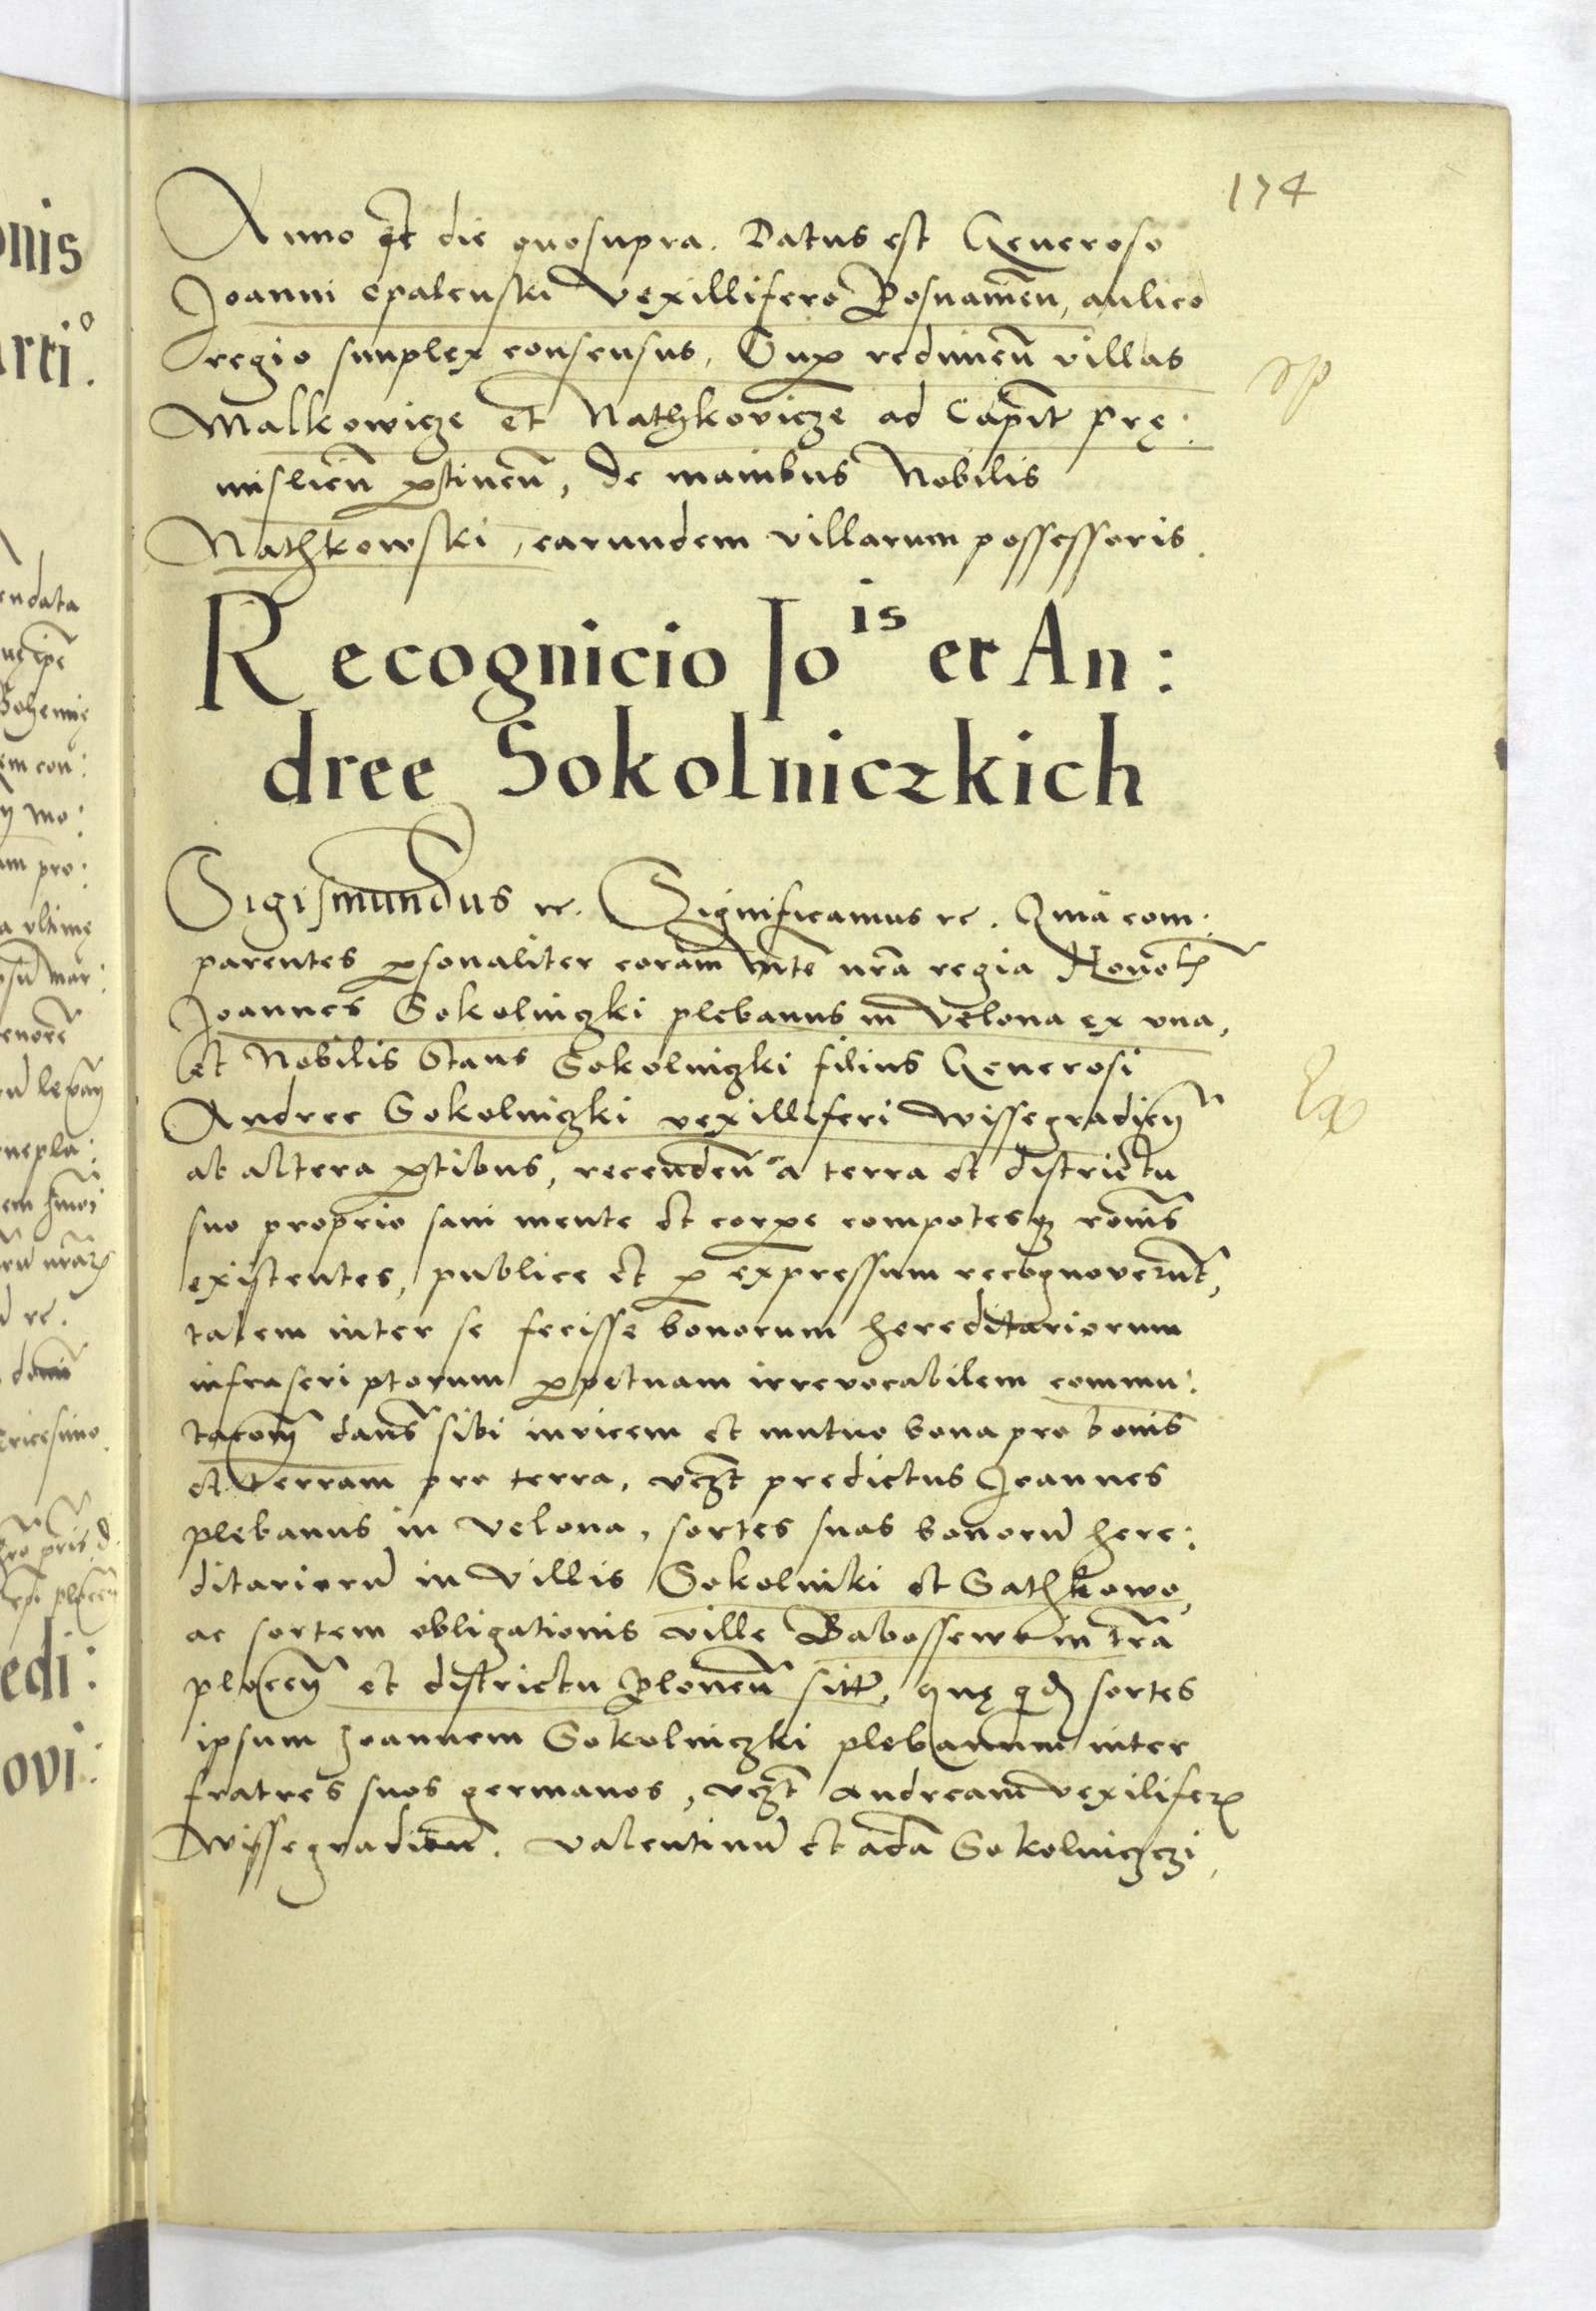 174
Anno et die quosupra. Datus est Generoso
Joanni Opalenski Vexillifero Posnanien̄, aulico
regio simplex consensus, Sup redimen̄ villas
Malkowicze et Nathkovicze ad Capit̄ Prę:
mislien̄ ptinen̄, de manibus Nobilis
Nathkowski, earundem villarum possessoris.
Recognicio Jo^is et An:
dree Sokolniczkich
Sigismundus rc. Significamus rc. Quia com:
parentes psonaliter coram Mte nr̄a regia Honor
Joannes Sokolniczki plebanus in Velona ex vna,
et Nobilis Staus Sokolniczki filius Generosi
Andree Sokolniczki vexilliferi Wissegradien̄
ab altera ptibus, recenden̄ a terra et districtu
suo proprio sani mente et corpe compotesq ronis
existentes, publice et p expressum recognoverunt,
talem inter se fecisse bonorum hereditariorum
infrascriptorum ppetuam irrevocabilem commu:
tacom̄ dan̄s sibi invicem et mutuo bona pro bonis
et terram pro terra, vczt predictus Joannes
plebanus in Velona, sortes suas bonorū here:
ditariorū in villis Sokolniki et Sathkowo,
ac sortem obligationis ville Babossewo in tr̄a
plocen̄ et districtu Plonen̄ sitt, quę qd sortes
ipsum Joannem Sokolniczki plebanum inter
fratres suos germanos, vczt Andream Vexilifer
Wissegradien̄. Valentinū et adā Sokolniczczi,